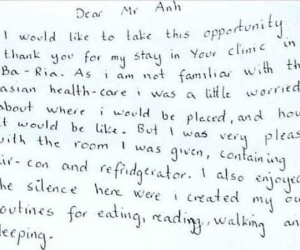 Dear Mr Anh
I would like to take this opportunity
thank you for my stay in Your clinic in
Ba-Ria. As i am not familiar with th
asian health-care i was a little worried
about where i would be placed, and how
it would be like. But I was very pleas
with the room I was given, containing
air-con and refridgerator. I also enjoyed
the silence here were i created my ou
outines for eating, reading, walking an
leeping.